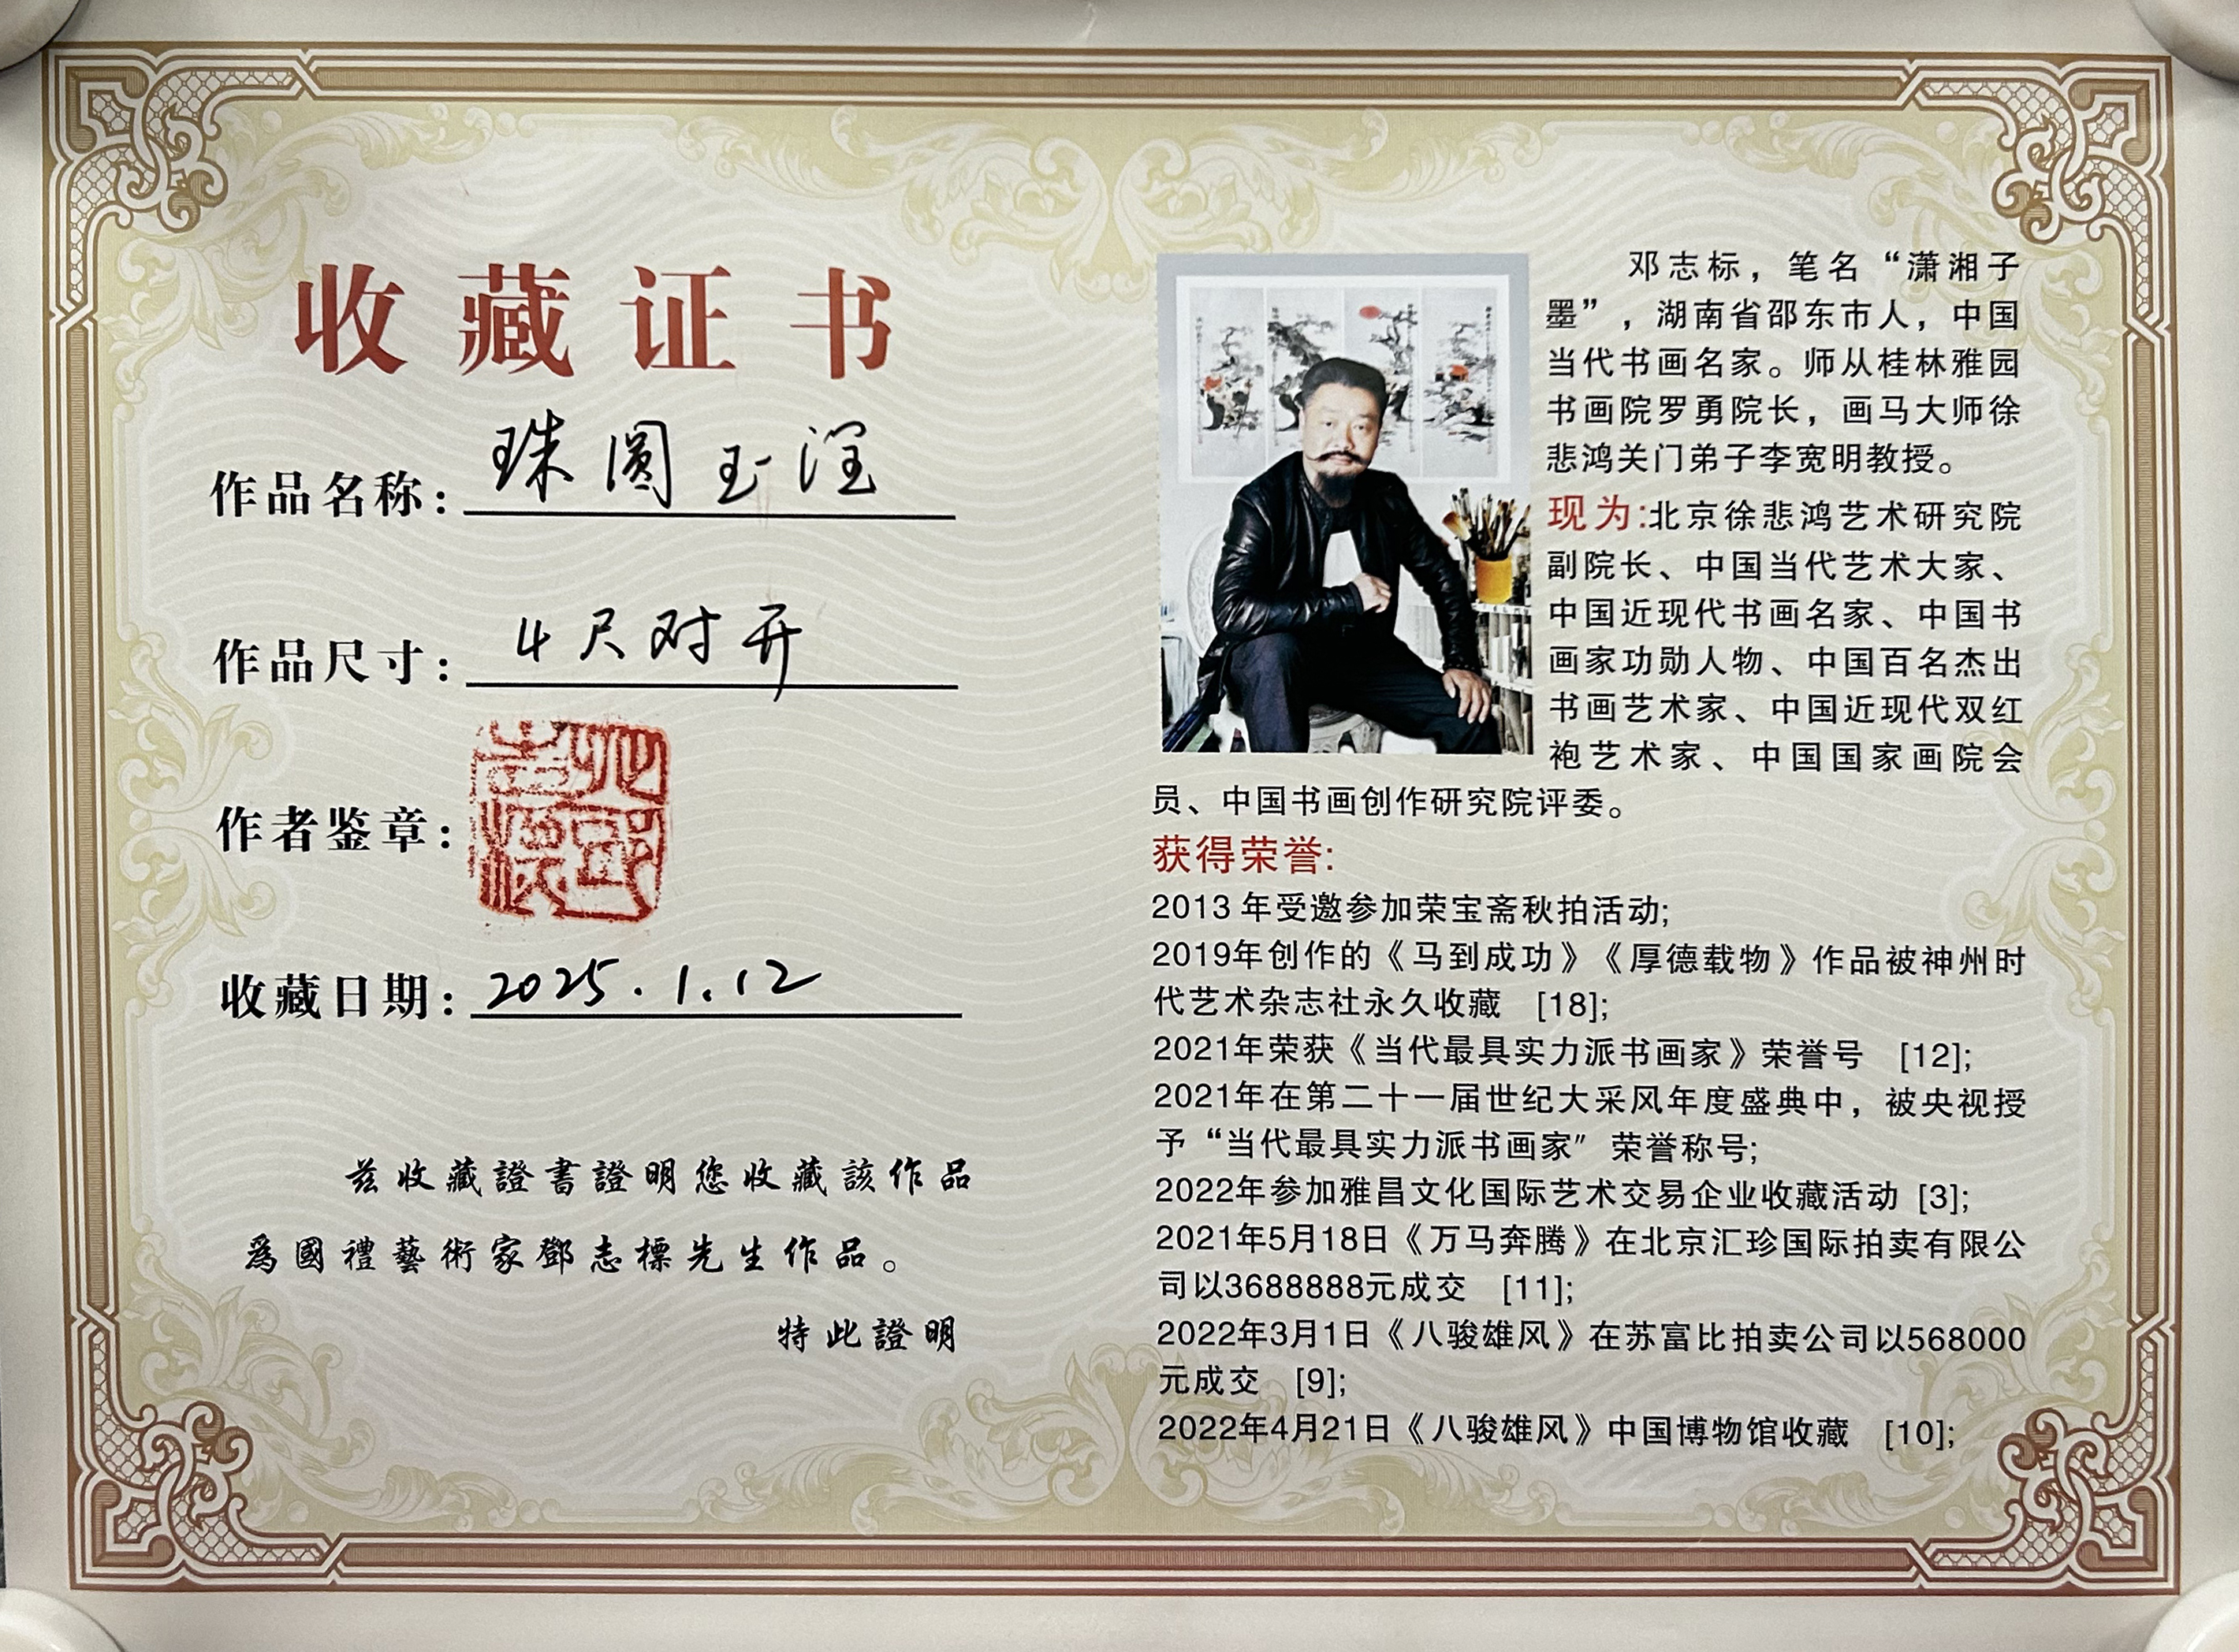 收藏证书
作品名称：珠圆玉润
作品尺寸：4尺对开
作者鉴章：
收藏日期：2025.1.12
兹收藏證書證明您收藏該作品
爲國禮藝術家鄧志標先生作品。
特此證明
邓志标，笔名“潇湘子
墨”，湖南省邵东市人，中国
当代书画名家。师从桂林雅园
书画院罗勇院长，画马大师徐
悲鸿关门弟子李宽明教授。
现为:北京徐悲鸿艺术研究院
副院长、中国当代艺术大家、
中国近现代书画名家、中国书
画家功勋人物、中国百名杰出
书画艺术家、中国近现代双红
袍艺术家、中国国家画院会
员、中国书画创作研究院评委。
获得荣誉:
2013年受邀参加荣宝斋秋拍活动;
2019年创作的《马到成功》《厚德载物》作品被神州时
代艺术杂志社永久收藏 [18];
2021年荣获《当代最具实力派书画家》荣誉号 [12];
2021年在第二十一届世纪大采风年度盛典中，被央视授
予“当代最具实力派书画家”荣誉称号;
2022年参加雅昌文化国际艺术交易企业收藏活动 [3];
2021年5月18日《万马奔腾》在北京汇珍国际拍卖有限公
司以3688888元成交 [11];
2022年3月1日《八骏雄风》在苏富比拍卖公司以568000
元成交 [9];
2022年4月21日《八骏雄风》中国博物馆收藏 [10];